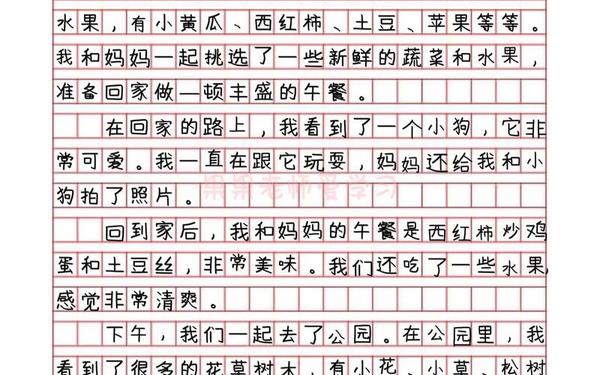 水果，有小黄瓜、西红柿、土豆、苹果等等。
我和妈妈一起挑选了一些新鲜的蔬菜和水果，
准备回家做一顿丰盛的午餐。
在回家的路上，我看到了一个小狗，它非
常可爱。我一直在跟它玩耍，妈妈还给我和小
狗拍了照片。
果果老师爱学习
回到家后，我和妈妈的午餐是西红柿炒鸡
蛋和土豆丝，非常美味。我们还吃了一些水果，
感觉非常清爽。
下午，我们一起去了公园。在公园里，我
看到了很多的花草树木，有小花、小草、松树